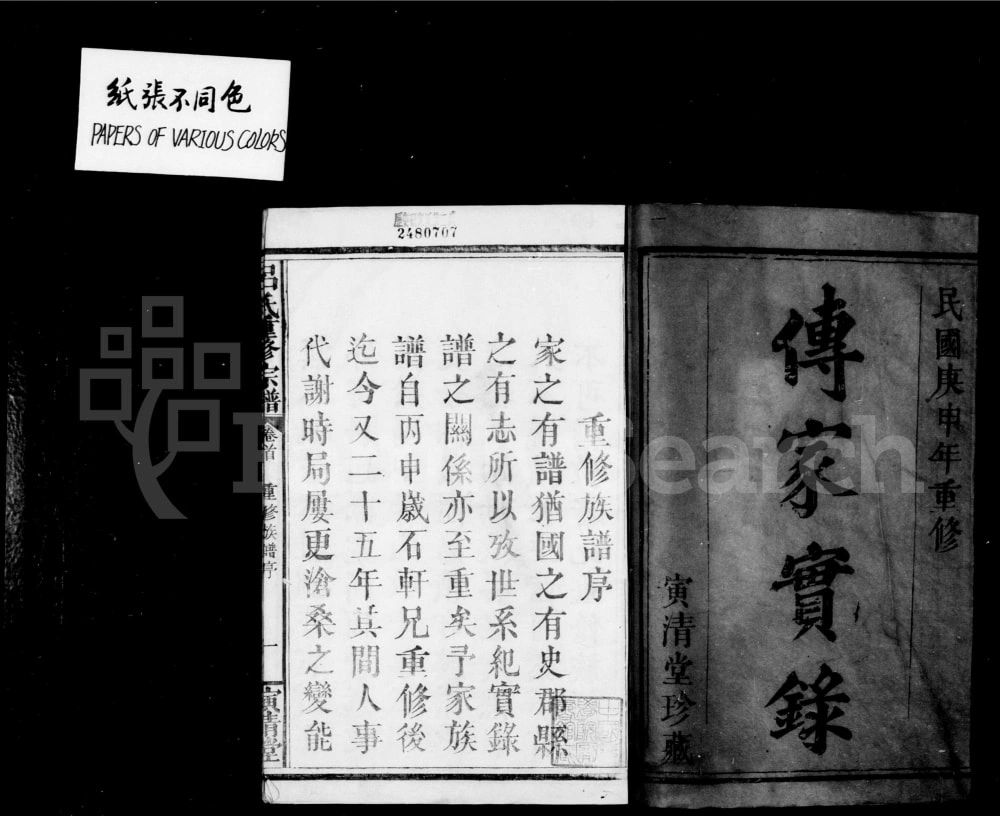 紙張不同色
PAPERS OF VARIOUS COLORS
民國庚申年重修
傳家實錄
寅清堂珍藏
2480707
重修族譜序
家之有譜猶國之有史郡縣
之有志所以攷世系紀實錄
譜之關係亦至重矣予家族
譜自丙申歲石軒兄重修後
迄今又二十五年其間人事
代謝時局屢更滄桑之變能
呂氏重修宗譜
卷首
重修族譜序
一
寅清堂